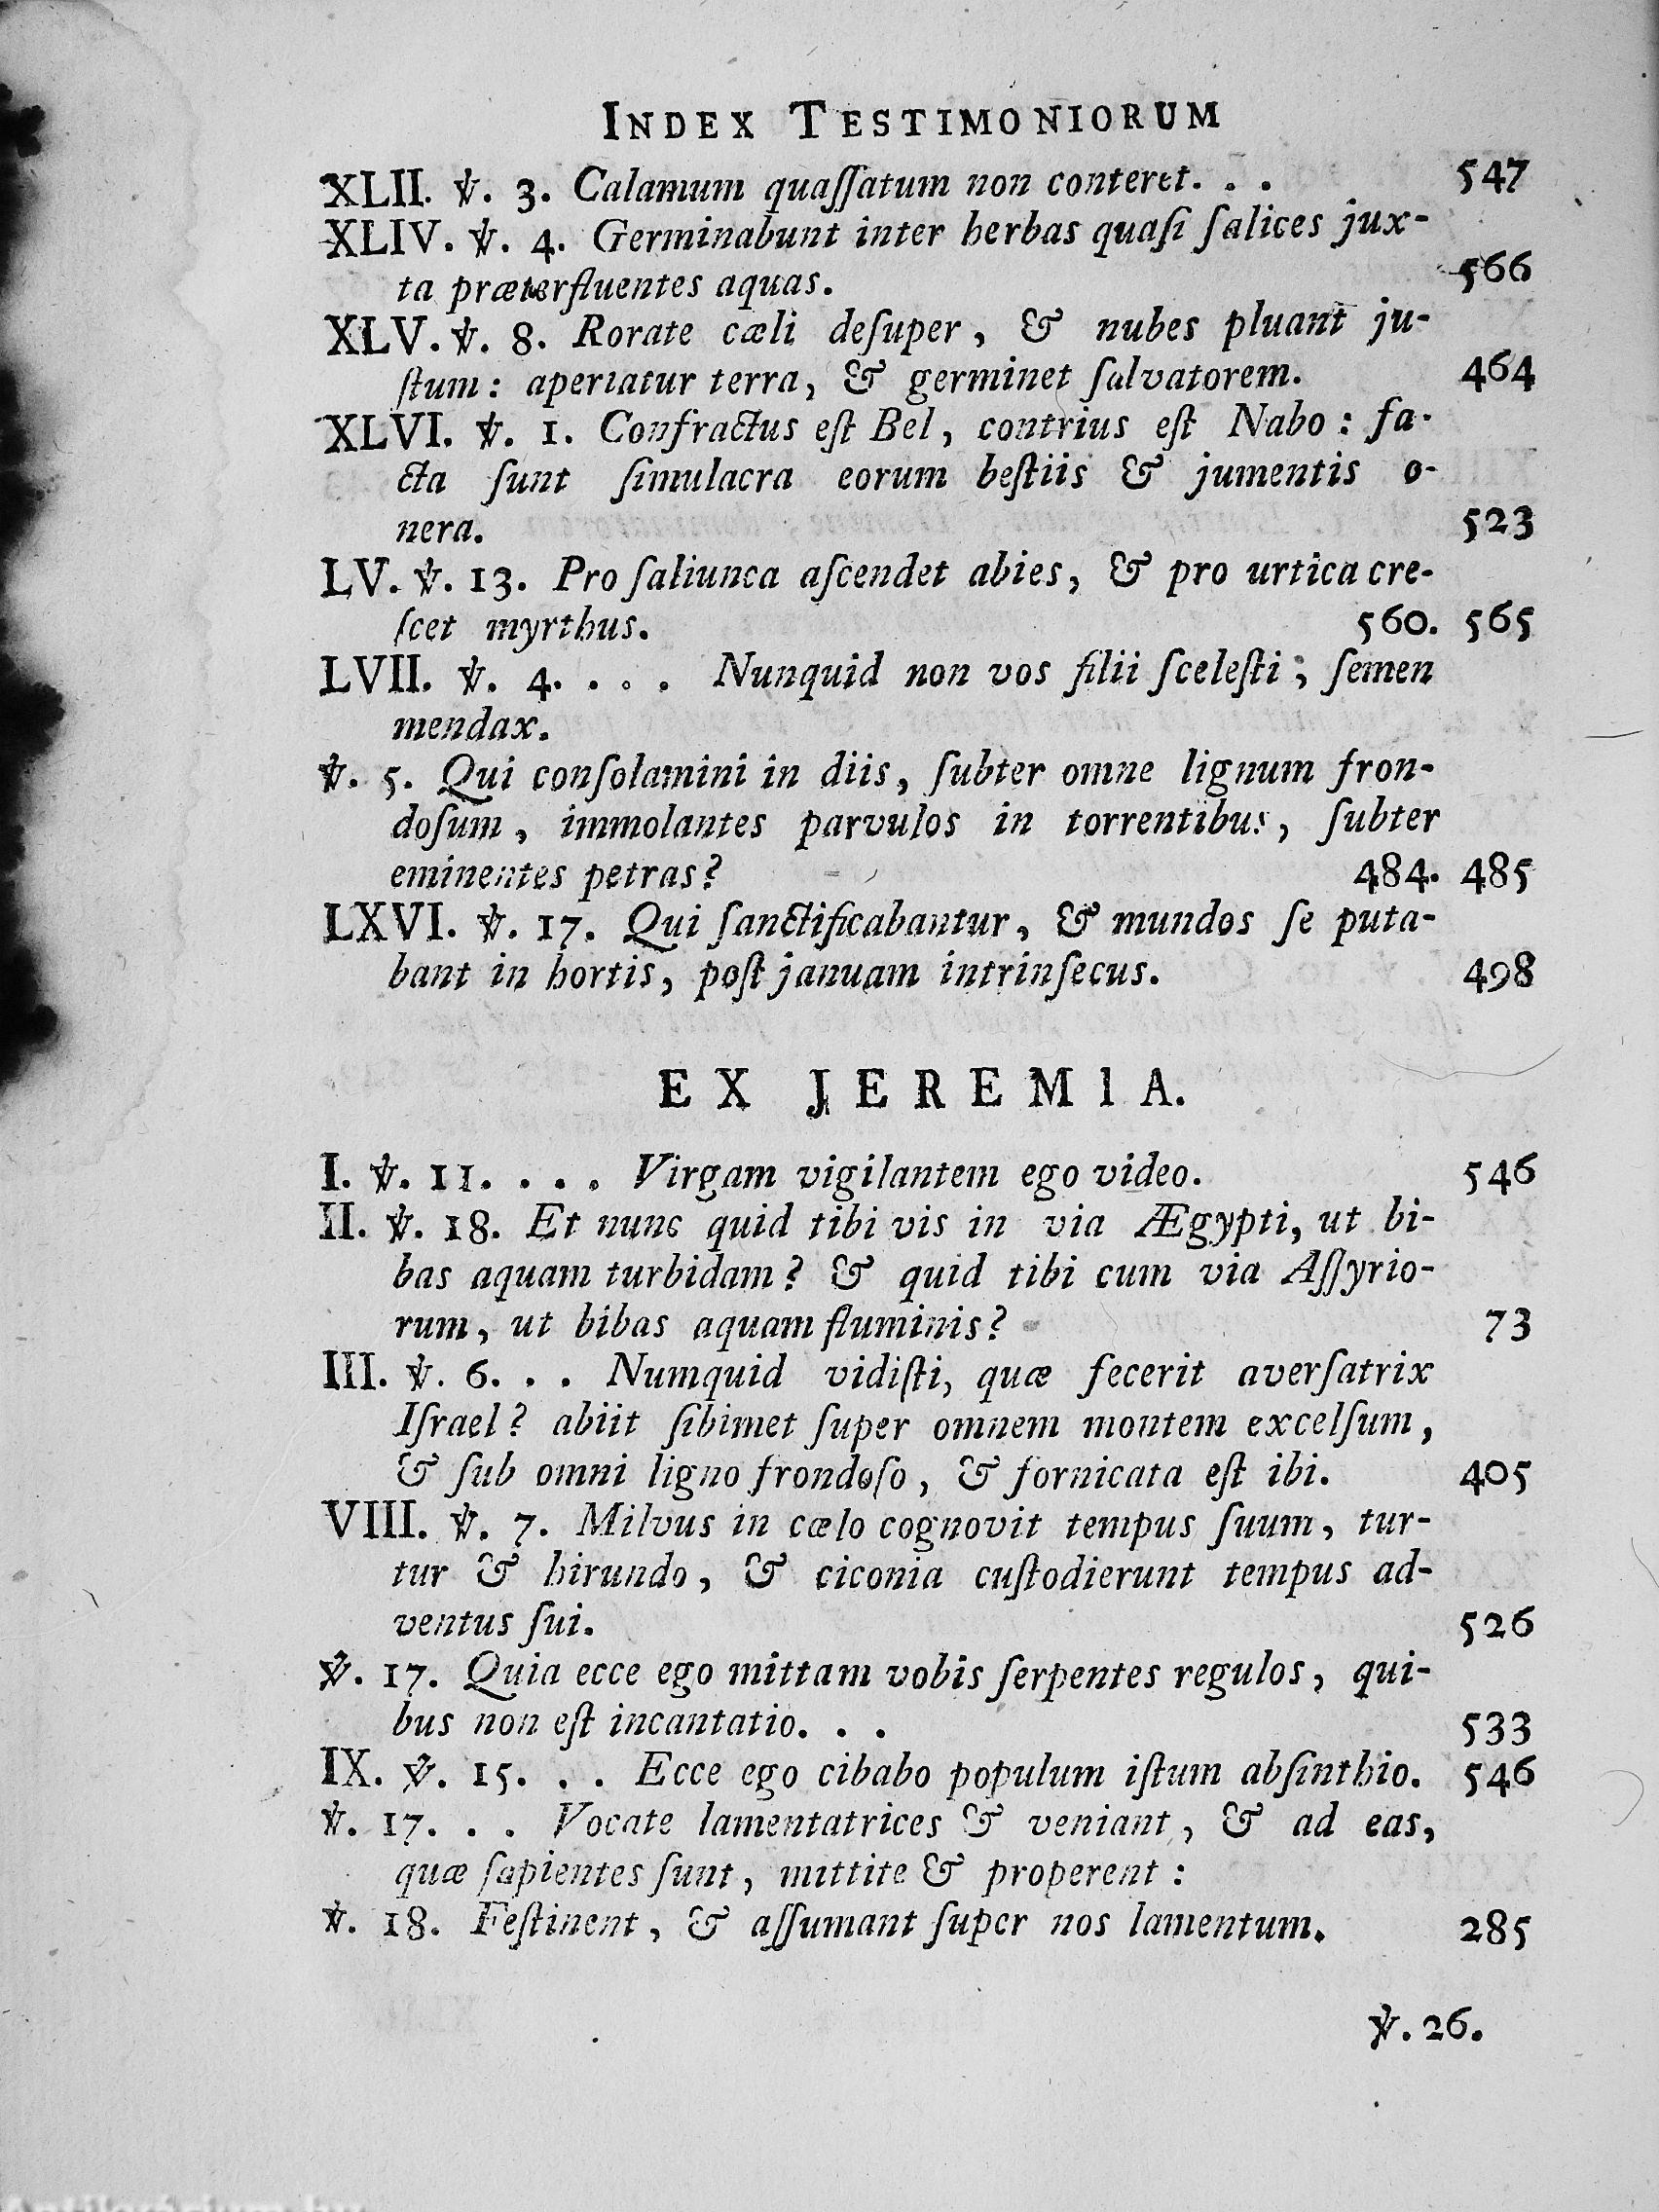 INDEX TESTIMONIORUM
XLII. ℣. 3. Calamum quaſſatum non conteret. . . 547
XLIV. ℣. 4. Germinabunt inter herbas quaſi ſalices jux-
ta præterfluentes aquas. 566
XLV. ℣. 8. Rorate cæli deſuper, & nubes pluant ju-
ſtum: aperiatur terra, & germinet ſalvatorem. 464
XLVI. ℣. 1. Confractus eſt Bel, contrius eſt Nabo: fa-
cta ſunt ſimulacra eorum beſtiis & jumentis o-
nera. 523
LV. ℣. 13. Pro ſaliunca aſcendet abies, & pro urtica cre-
ſcet myrthus. 560. 565
LVII. ℣. 4. . . . Nunquid non vos filii ſceleſti; ſemen
mendax.
℣. 5. Qui conſolamini in diis, ſubter omne lignum fron-
doſum, immolantes parvulos in torrentibus, ſubter
eminentes petras? 484. 485
LXVI. ℣. 17. Qui ſanctificabantur, & mundos ſe puta-
bant in hortis, poſt januam intrinſecus. 498
EX JEREMIA.
I. ℣. 11. . . . Virgam vigilantem ego video. 546
II. ℣. 18. Et nunc quid tibi vis in via Ægypti, ut bi-
bas aquam turbidam? & quid tibi cum via Aſſyrio-
rum, ut bibas aquam fluminis? 73
III. ℣. 6. . . Numquid vidiſti, quæ fecerit averſatrix
Iſrael? abiit ſibimet ſuper omnem montem excelſum,
& ſub omni ligno frondoſo, & fornicata eſt ibi. 405
VIII. ℣. 7. Milvus in cælo cognovit tempus ſuum, tur-
tur & hirundo, & ciconia cuſtodierunt tempus ad-
ventus ſui. 526
℣. 17. Quia ecce ego mittam vobis ſerpentes regulos, qui-
bus non eſt incantatio. . . 533
IX. ℣. 15. . . Ecce ego cibabo populum iſtum abſinthio. 546
℣. 17. . . Vocate lamentatrices & veniant, & ad eas,
quæ ſapientes ſunt, mittite & properent:
℣. 18. Feſtinent, & aſſumant ſuper nos lamentum. 285
℣. 26.